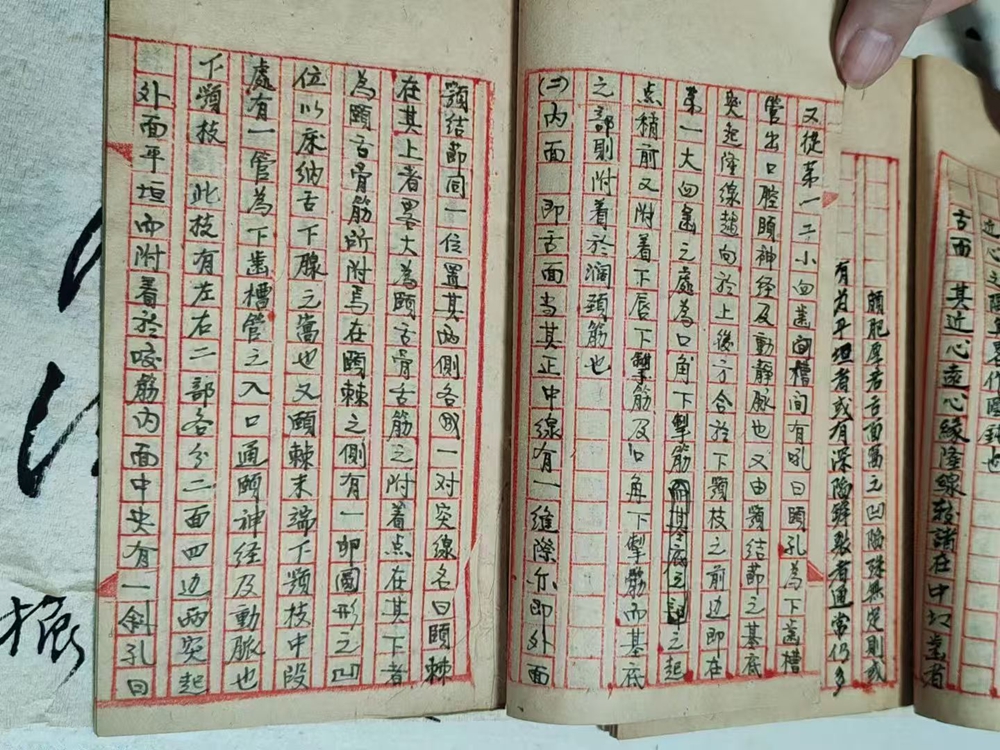 舌面 其近心遠心緣隆線較諸在中切齒者
頗肥厚者舌面窩之凹陷殊無定則或
有為平坦者或有深陷辟裂者通常仍多
又從第一二小臼齒間槽間有吼曰頤孔為下齒槽
管出口腔頤神经及動靜脉也又由顎结節之基底
突起隆線趨向於上後方合於下顎枝之前边即在
第一大臼齒之處為口角下掣筋之起
点稍前又附着下唇下掣筋及口角下掣筋而基底
之部則附着於濶頸筋也
(二)内面 即舌面当其正中線有一縫際亦即外面
顎结節同一位置其両側各有一对突線名曰頤棘
在其上者畧大為頤舌骨舌筋之附着点在其下者
為頤舌骨筋所附焉在頤棘之側有一卵圓形之凹
位以床纳舌下腺之窩也又頤棘末端下顎枝中段
處有一管為下齒槽管之入口通頤神经及動脈也
下顎枝 此枝有左右二部各分二面四边两突起
外面平坦而附着於咬筋内面中央有一斜孔曰